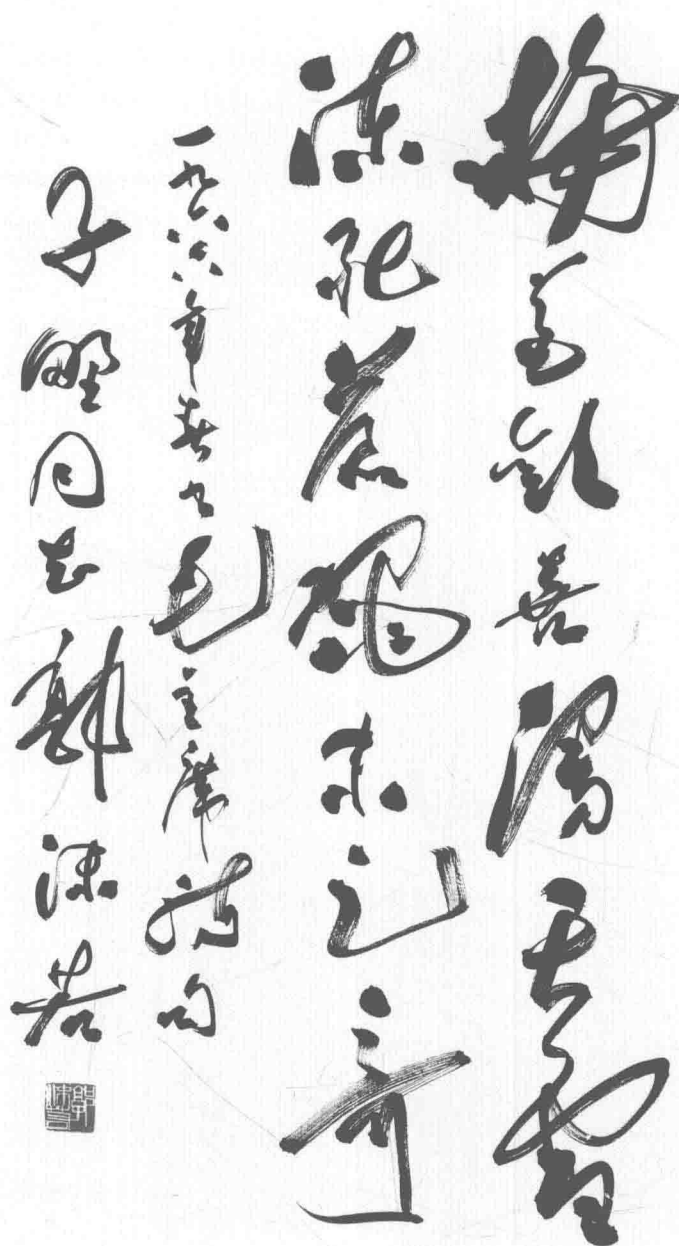 梅花欢喜漫天雪
冻死苍蝇未足奇
一九六六年春书毛主席诗句
子野同志 郭沫若
郭沫若